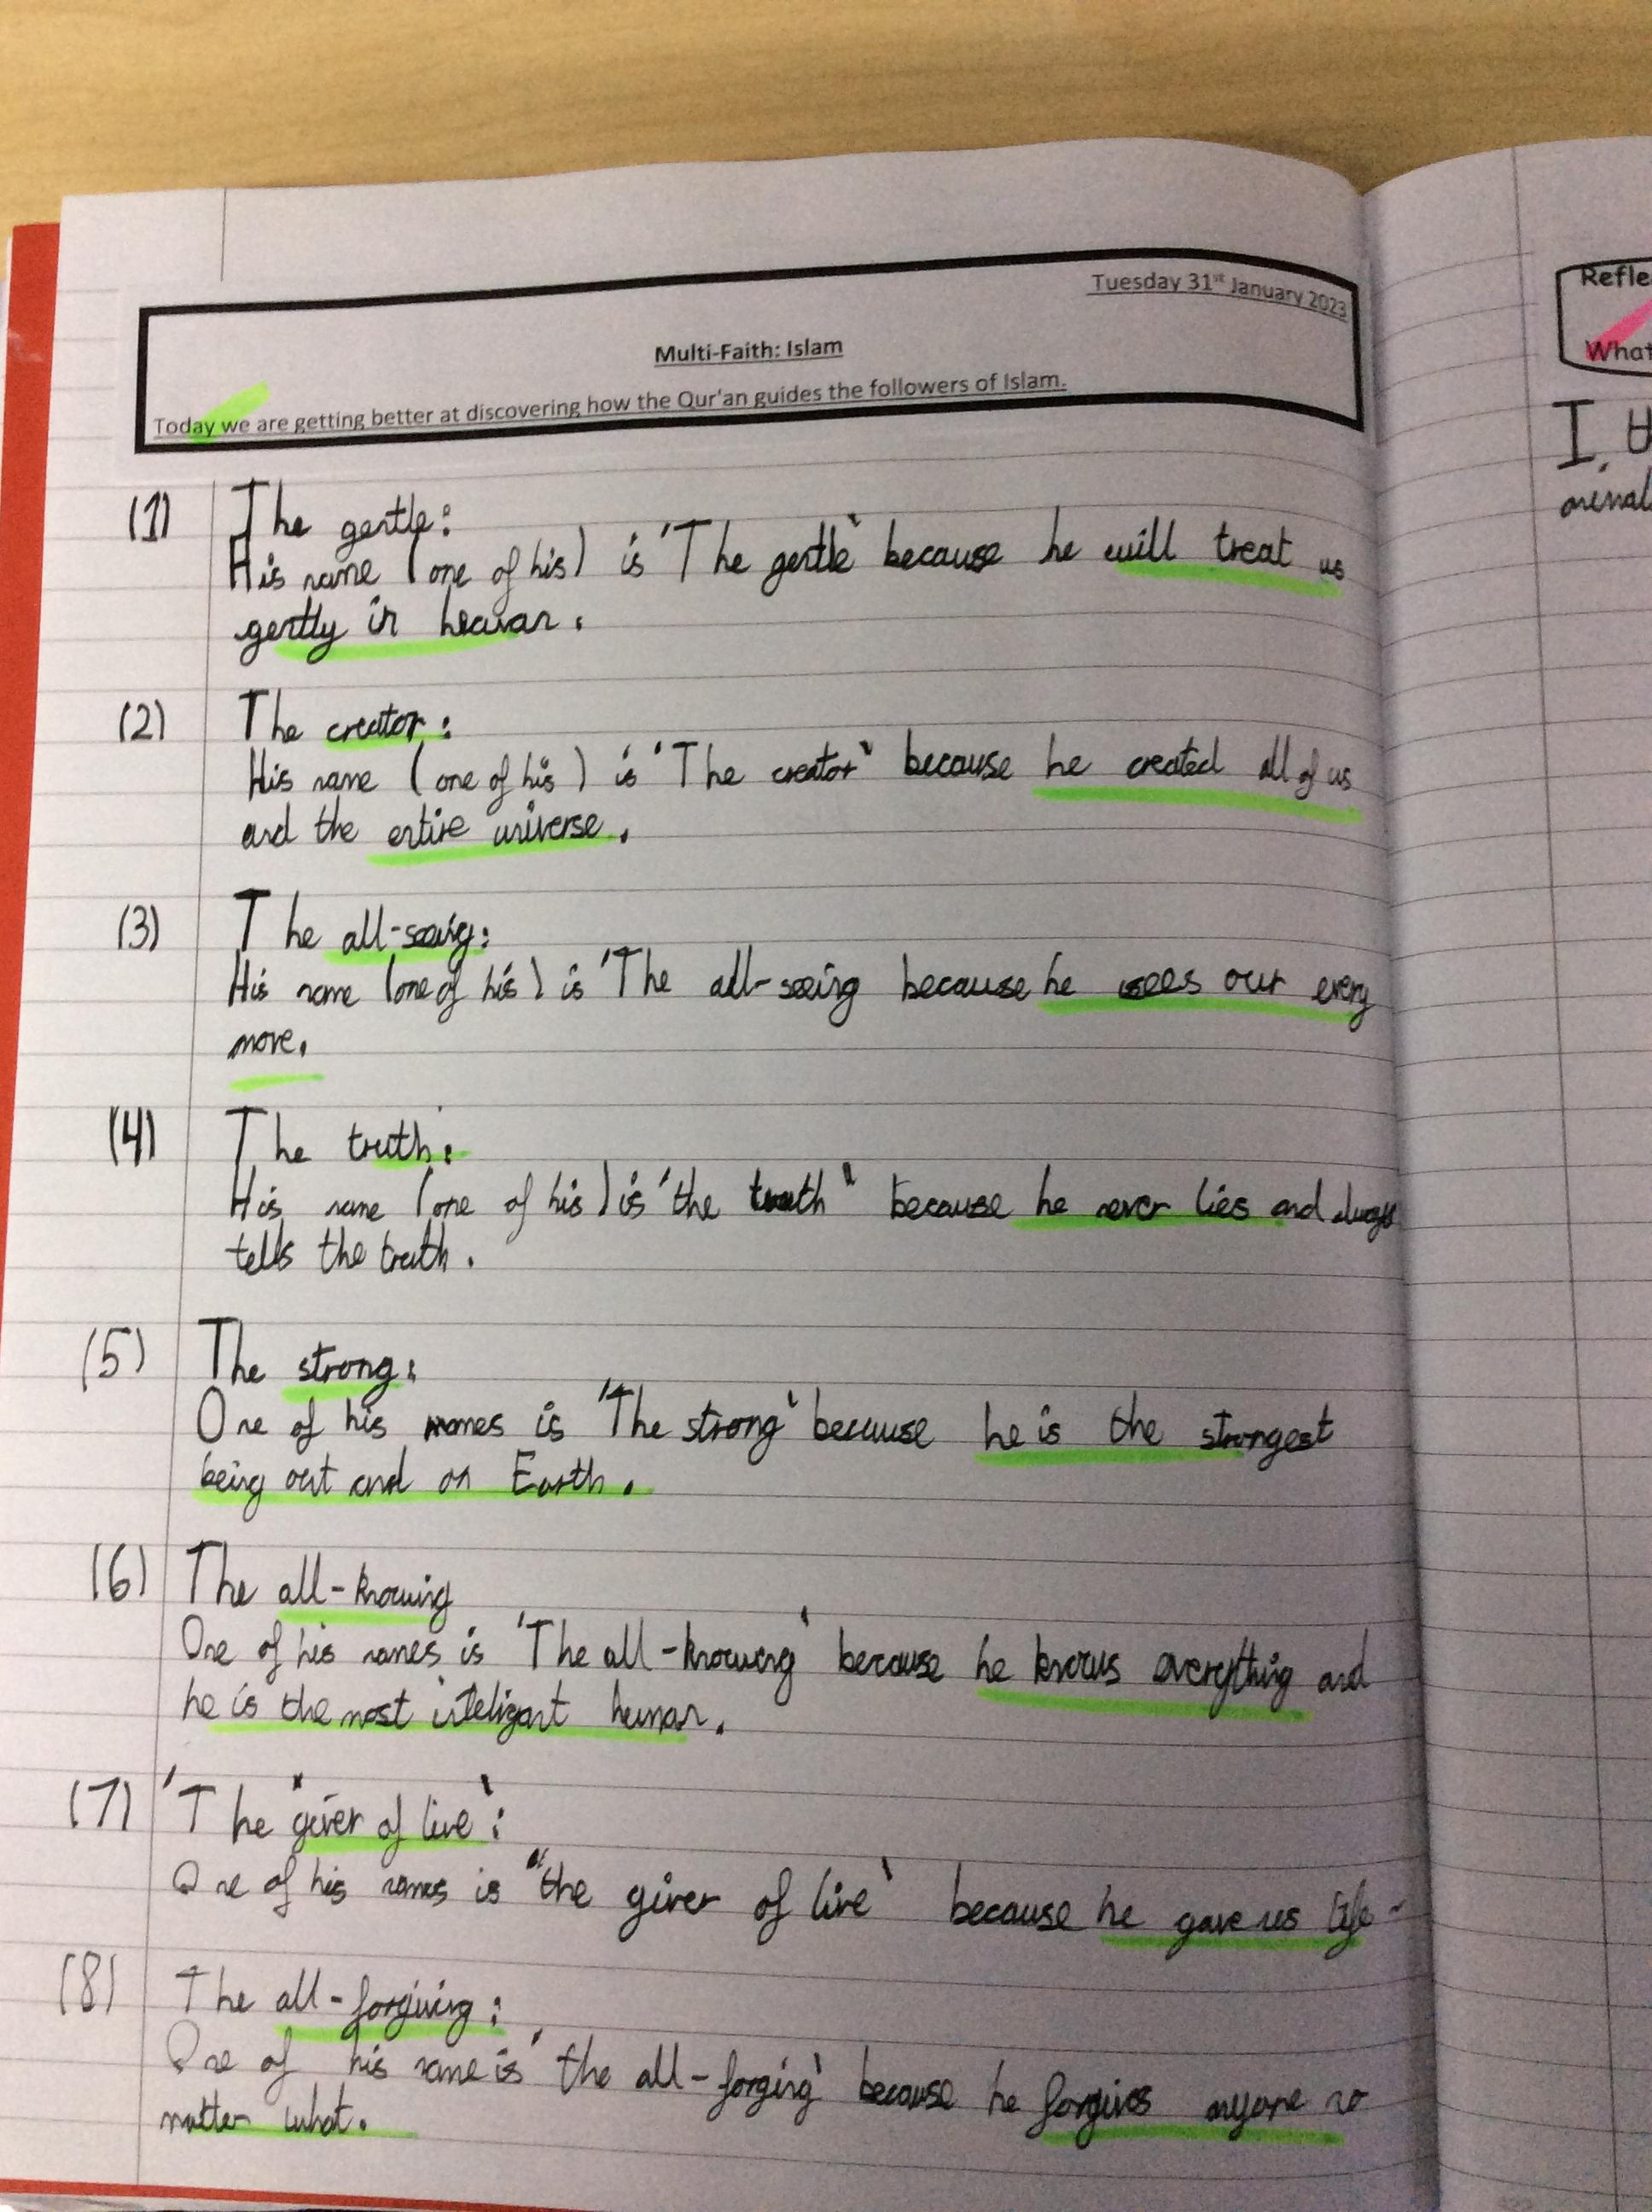 Tuesday 31st January 2023
Multi-Faith: Islam
Today we are getting better at discovering how the Qur'an guides the followers of Islam.
(1) The gentle:
His name (one of his) is 'The gentle' because he will treat us
gently in heavan.
(2) The creator:
His name (one of his) is 'The creator' because he created all of us
and the entire universe.
(3) The all-seeing:
His name (one of his) is 'The all-seeing because he sees our every
move.
(4) The truth:
His name (one of his) is 'the truth" because he never lies and always
tells the truth.
(5) The strong:
One of his names is 'The strong' because he is the strongest
being out and on Earth.
(6) The all-knowing
One of his names is 'The all-knowing' because he knows everything and
he is the most inteligant human.
(7) 'The "giver of live':
One of his names is "the giver of live' because he gave us life-
(8) The all-forgiving:
One of his name is 'the all-forging' because he forgives anyone no
matter what.
Refle
What
I th
animal